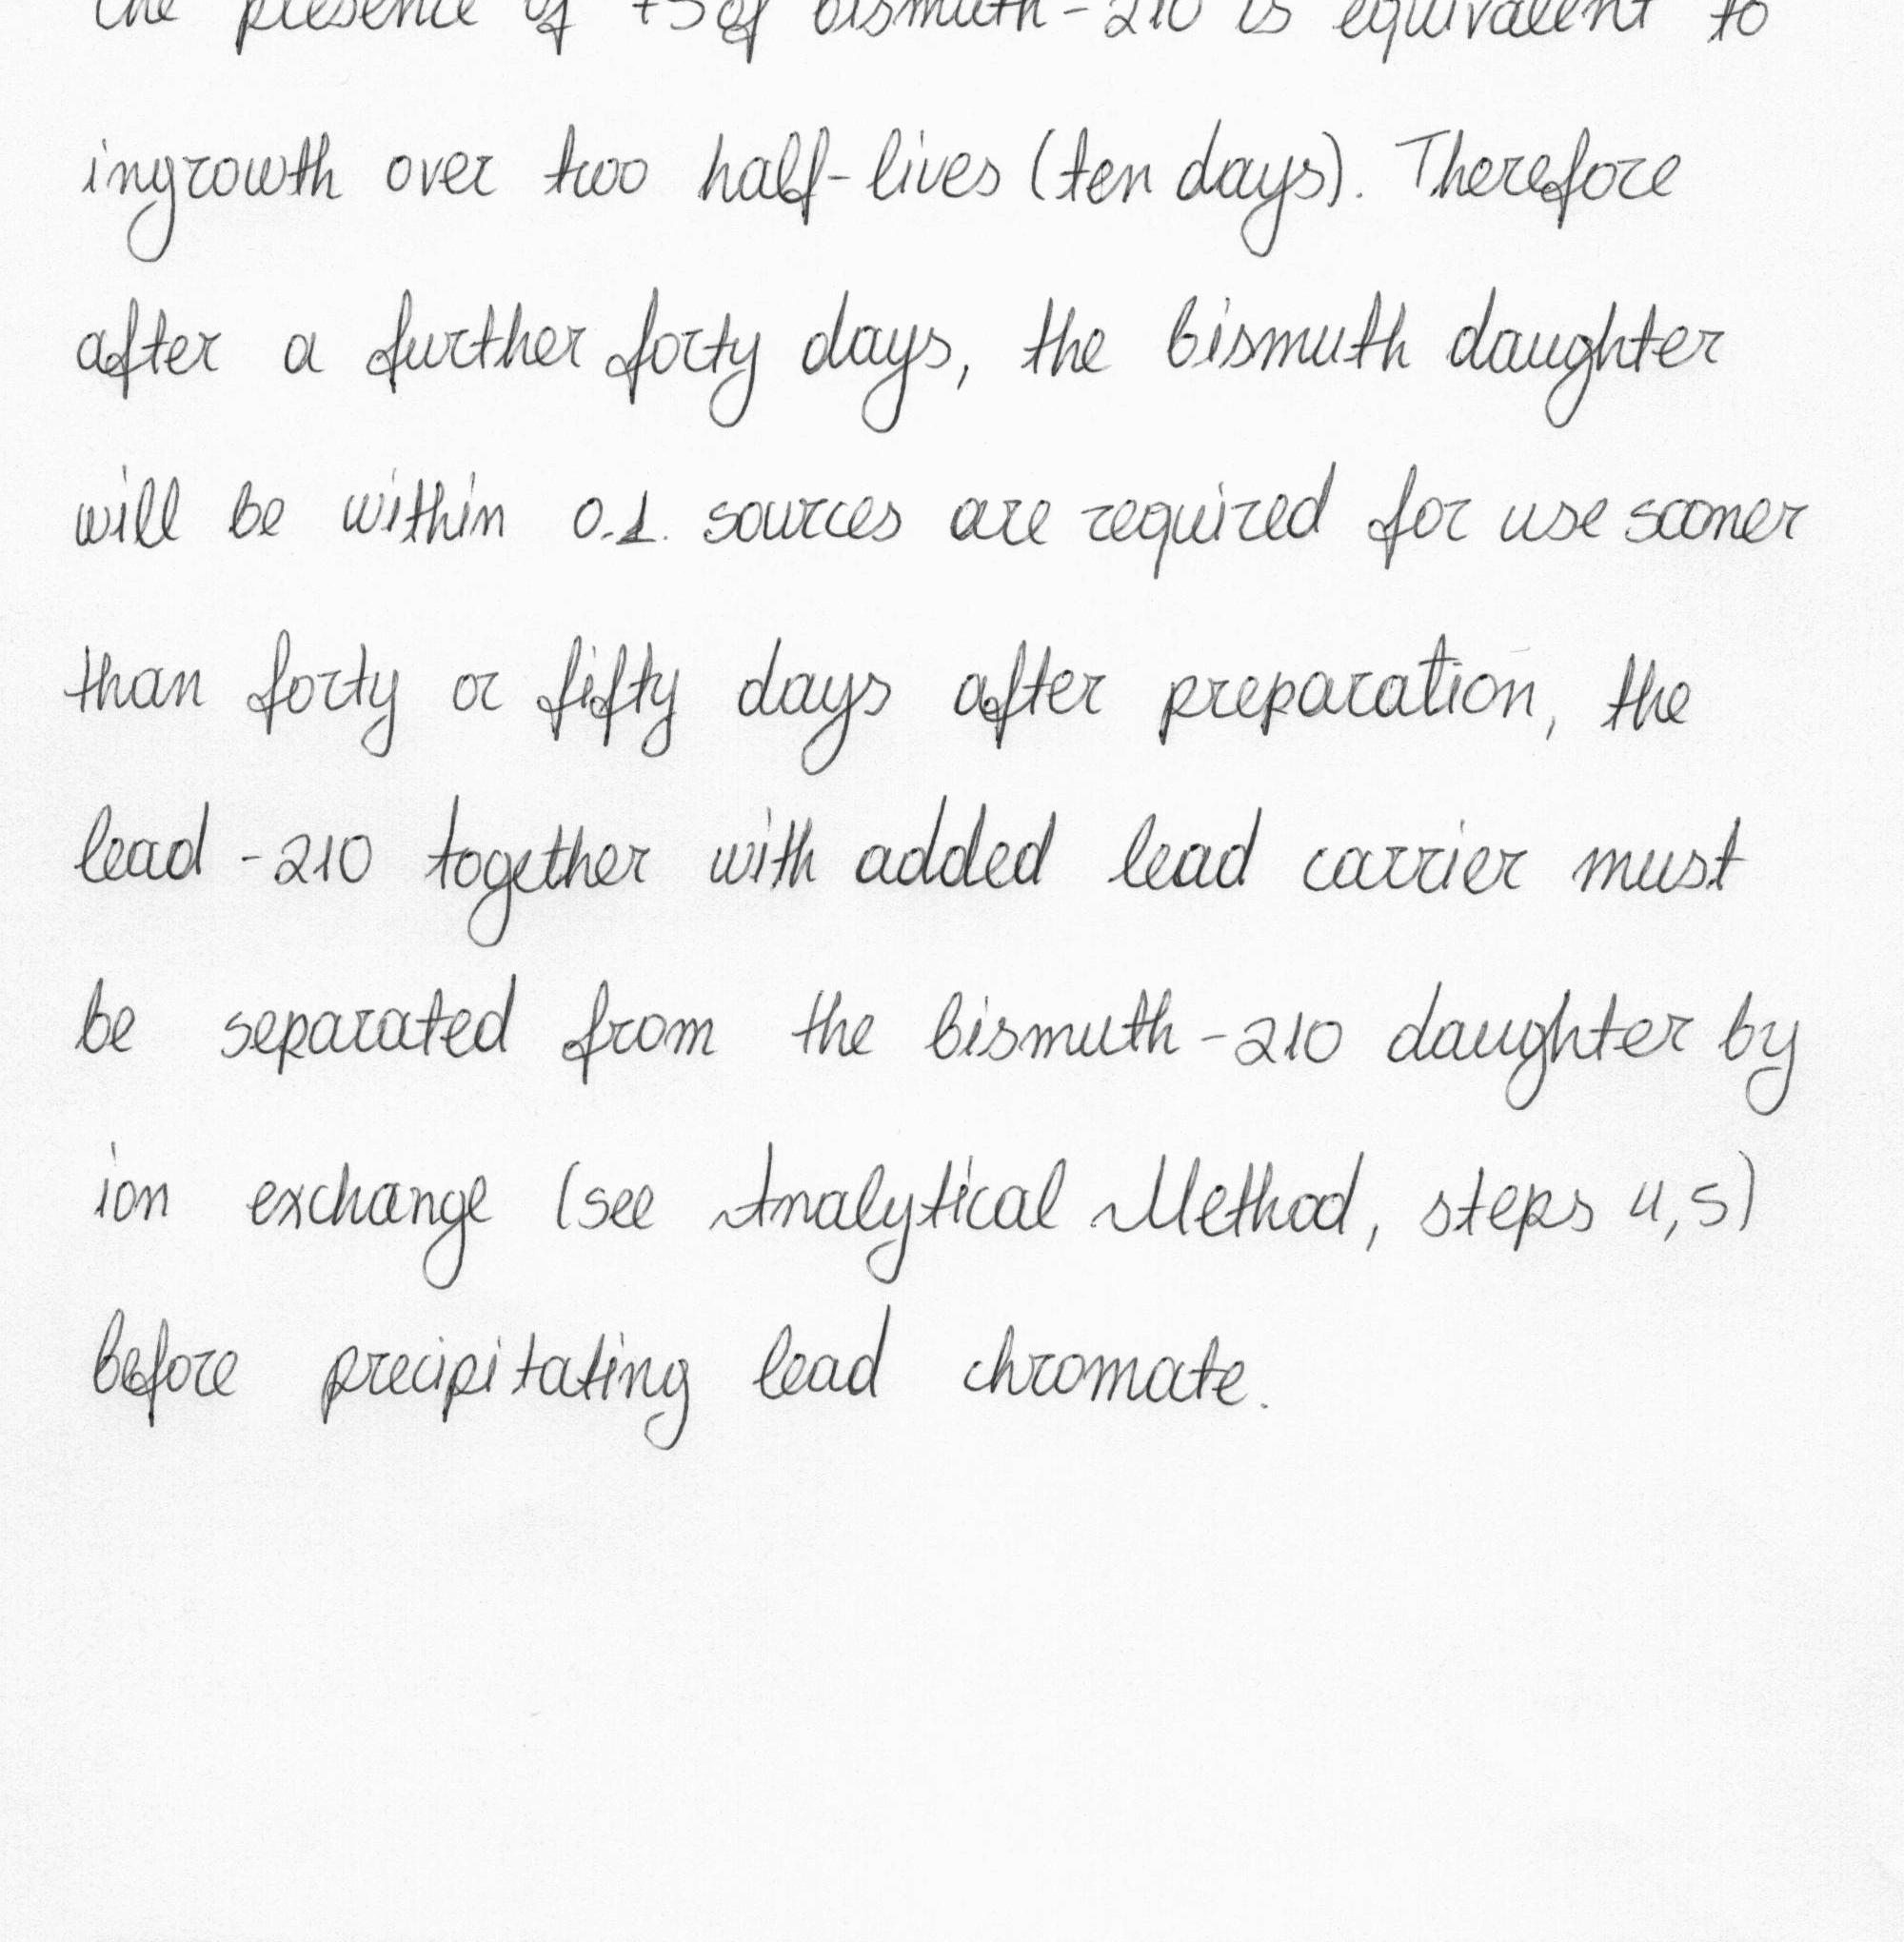 the presence of 75 of bismuth-210 is equivalent to
ingrowth over two half-lives (ten days). Therefore
after a further forty days, the bismuth daughter
will be within 0.1. sources are required for use sooner
than forty or fifty days after preparation, the
lead-210 together with added lead carrier must
be separated from the bismuth-210 daughter by
ion exchange (see Analytical Method, steps 4,5)
before precipitating lead chromate.